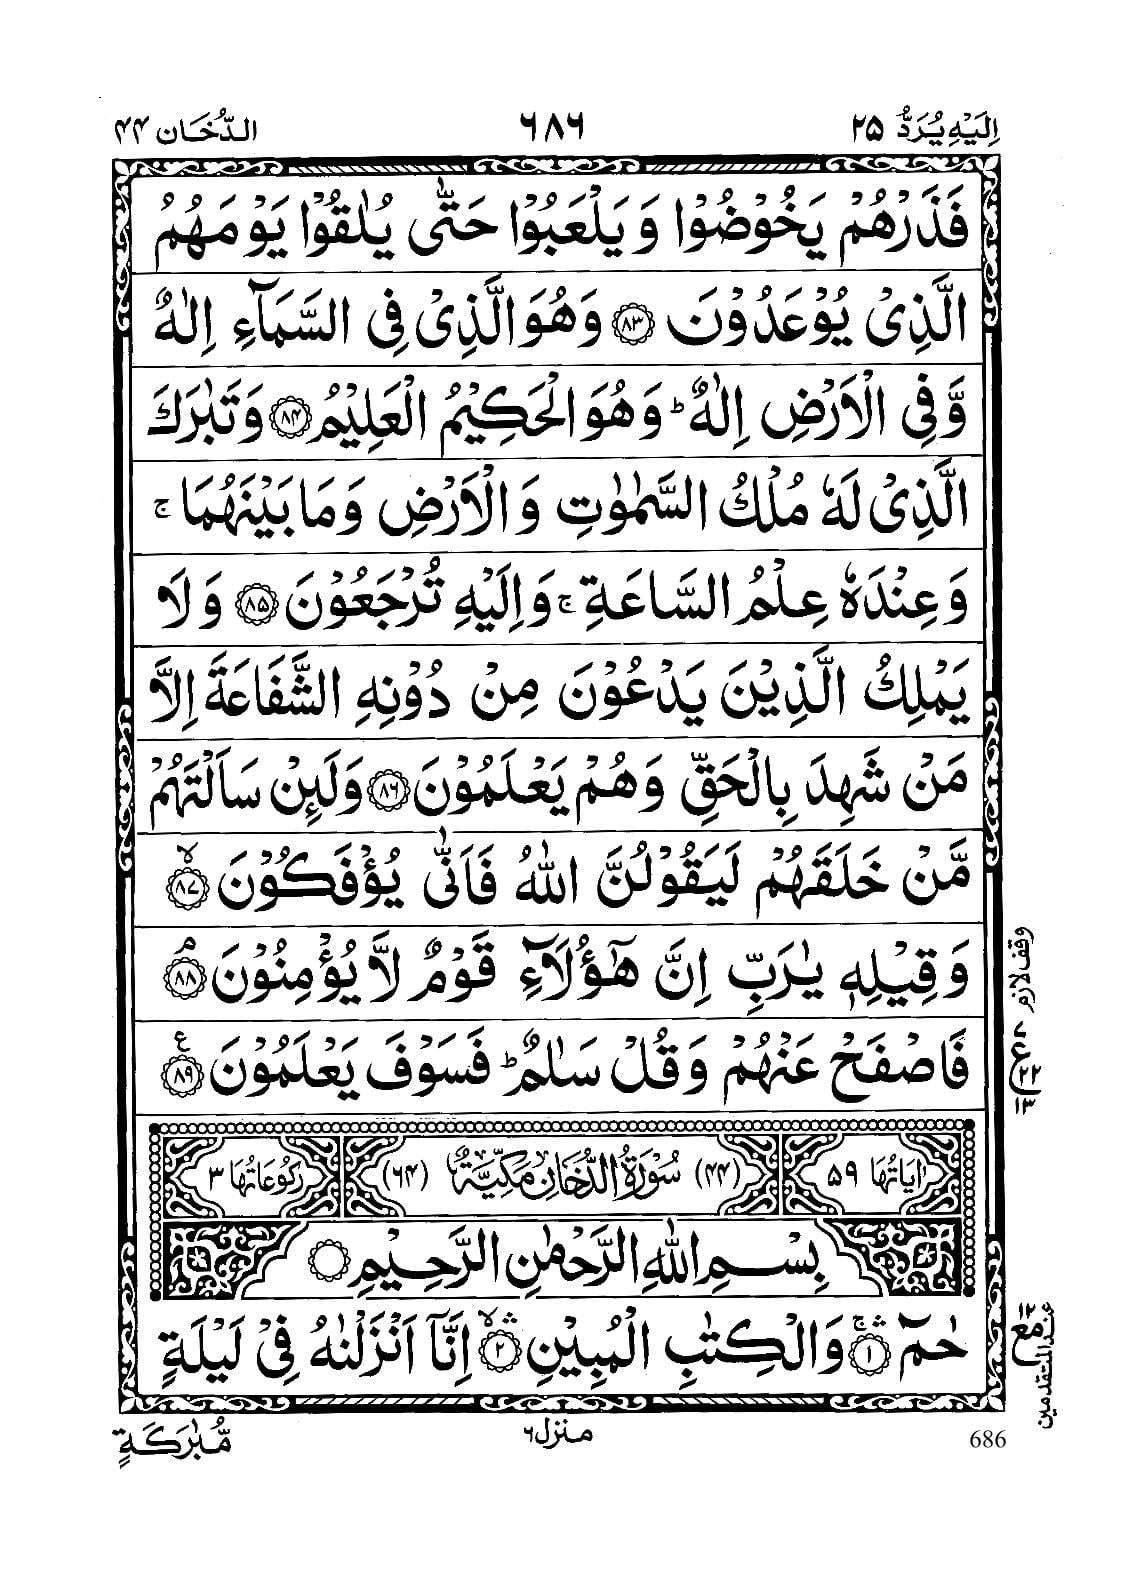 اِلَيْهِ يُرَدُّ ۲۵
٦٨٦
الدُّخَان ۴۴
فَذَرْهُمْ يَخُوْضُوْا وَ يَلْعَبُوْا حَتّٰى يُلٰقُوْا يَوْمَهُمُ
الَّذِىْ يُوْعَدُوْنَ ۸۳ وَ هُوَ الَّذِىْ فِى السَّمَآءِ اِلٰهٌ
وَّ فِى الْاَرْضِ اِلٰهٌ ؕ وَ هُوَ الْحَكِيْمُ الْعَلِيْمُ ۸۴ وَ تَبٰرَكَ
الَّذِىْ لَهٗ مُلْكُ السَّمٰوٰتِ وَ الْاَرْضِ وَ مَا بَيْنَهُمَا ۚ
وَ عِنْدَهٗ عِلْمُ السَّاعَةِ ۚ وَ اِلَيْهِ تُرْجَعُوْنَ ۸۵ وَ لَا
يَمْلِكُ الَّذِيْنَ يَدْعُوْنَ مِنْ دُوْنِهِ الشَّفَاعَةَ اِلَّا
مَنْ شَهِدَ بِالْحَقِّ وَ هُمْ يَعْلَمُوْنَ ۸۶ وَ لَئِنْ سَاَلْتَهُمْ
مَّنْ خَلَقَهُمْ لَيَقُوْلُنَّ اللّٰهُ فَاَنّٰى يُؤْفَكُوْنَ ۙ ۸۷
وَ قِيْلِهٖ يٰرَبِّ اِنَّ هٰۤؤُلَآءِ قَوْمٌ لَّا يُؤْمِنُوْنَ ۘ ۸۸
وقف لازم
فَاصْفَحْ عَنْهُمْ وَ قُلْ سَلٰمٌ ؕ فَسَوْفَ يَعْلَمُوْنَ ع ۸۹
۷
ع
۲۲
۱۳
اٰيَاتُهَا ۵۹
(۴۴) سُوْرَةُ الدُّخَانِ مَكِّيَّةٌ (۶۴)
رُكُوْعَاتُهَا ۳
بِسْمِ اللّٰهِ الرَّحْمٰنِ الرَّحِيْمِ
حٰمٓ ۱ وَ الْكِتٰبِ الْمُبِيْنِ ۲ اِنَّاۤ اَنْزَلْنٰهُ فِىْ لَيْلَةٍ
مع ۱۲
عند المتقدمين
مُّبٰرَكَةٍ
منزل ٦
686